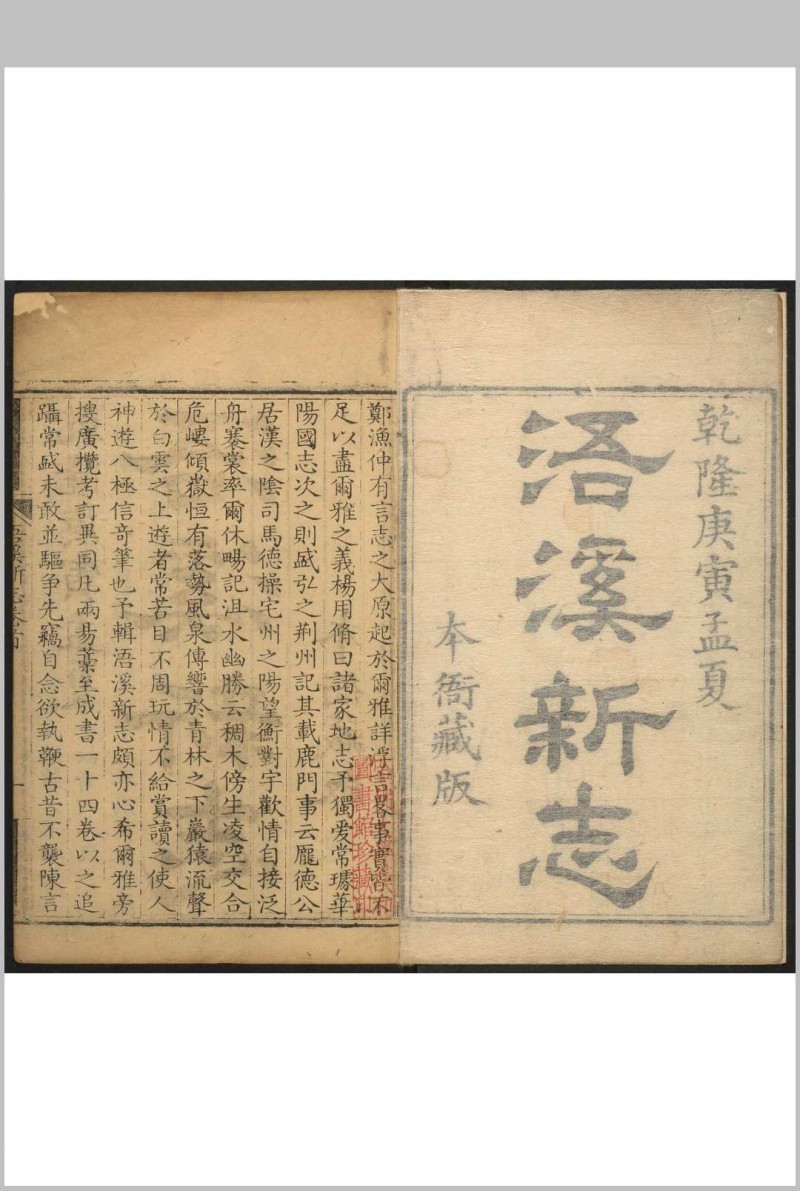 乾隆庚寅孟夏
浯溪新志
本衙藏版
鄭漁仲有言志之大原起於爾雅詳浮言畧事實皆不
足以盡爾雅之義楊用脩曰諸家地志予獨爱常璩華
陽國志次之則盛弘之荆州記其載鹿門事云龐德公
居漢之陰司馬德操宅州之陽望衡對宇歡情自接泛
舟褰裳率爾休暢記沮水幽勝云稠木傍生凌空交合
危嶁傾嶽恒有落勢風泉傳響於青林之下巖猿流聲
於白雲之上遊者常苦目不周玩情不給賞讀之使人
神遊八極信奇筆也予輯浯溪新志頗亦心希爾雅旁
搜廣攬考訂異同凡兩易藁至成書一十四卷以之追
躡常盛未敢並驅爭先竊自念欲執鞭古昔不襲陳言
浯溪新志卷首
一
圖書館珍藏印